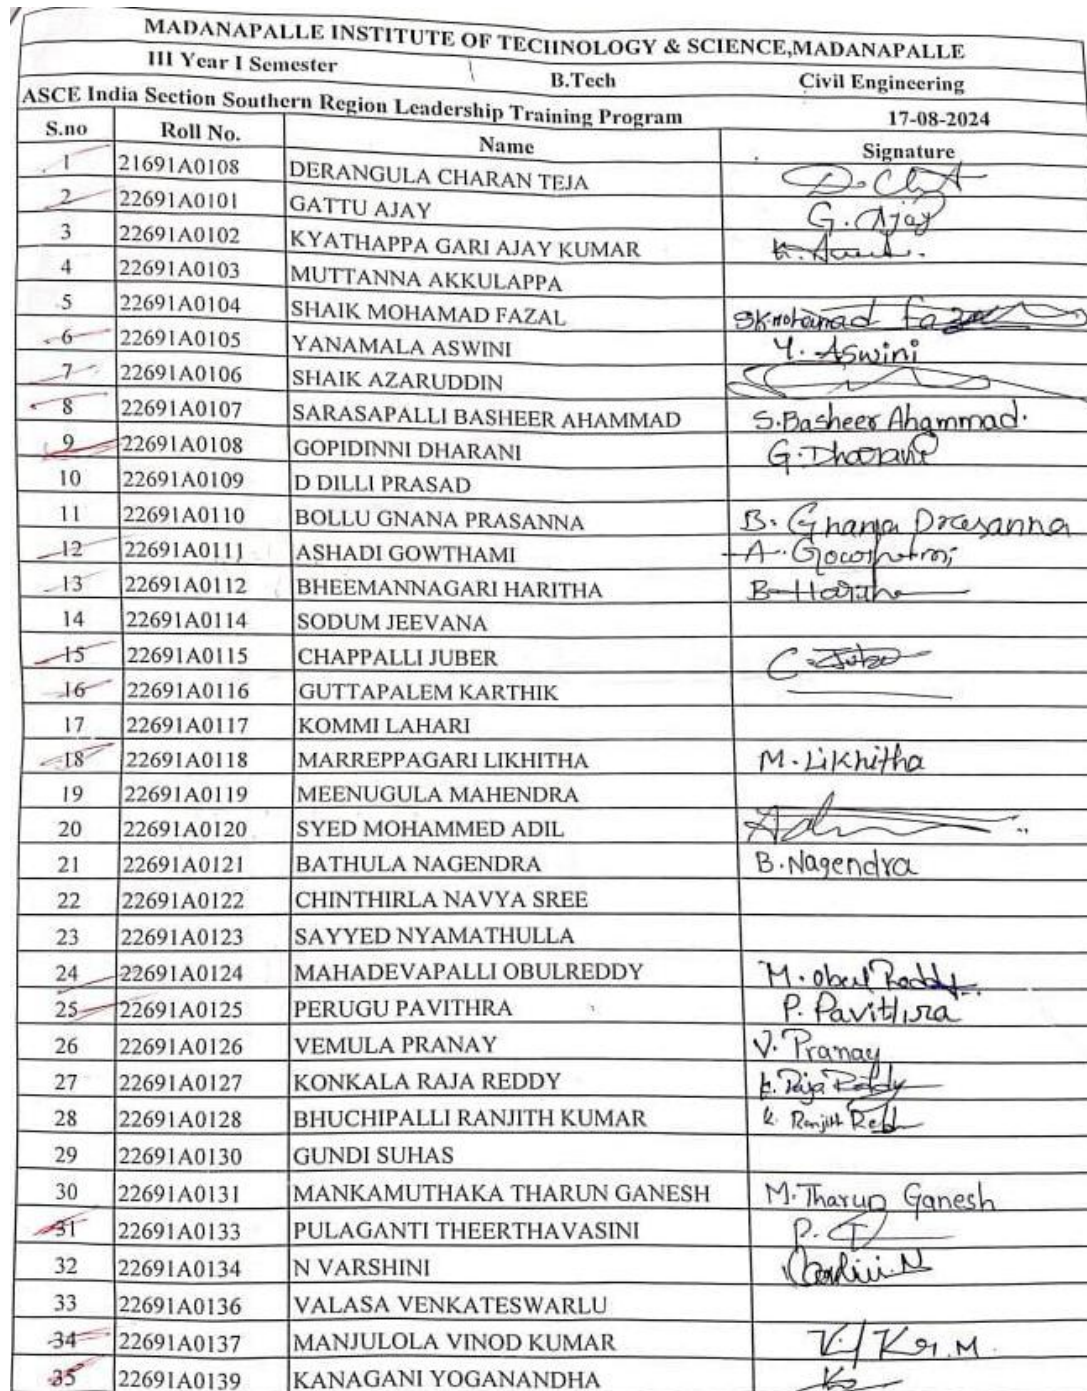 MADANAPALLE INSTITUTE OF TECHNOLOGY & SCIENCE,MADANAPALLE
III Year I Semester B.Tech Civil Engineering
ASCE India Section Southern Region Leadership Training Program 17-08-2024
S.no Roll No. Name Signature
1 21691A0108 DERANGULA CHARAN TEJA
2 22691A0101 GATTU AJAY G. Ajay
3 22691A0102 KYATHAPPA GARI AJAY KUMAR
4 22691A0103 MUTTANNA AKKULAPPA
5 22691A0104 SHAIK MOHAMAD FAZAL
6 22691A0105 YANAMALA ASWINI Y. Aswini
7 22691A0106 SHAIK AZARUDDIN
8 22691A0107 SARASAPALLI BASHEER AHAMMAD S.Basheer Ahammad.
9 22691A0108 GOPIDINNI DHARANI G.
10 22691A0109 D DILLI PRASAD
11 22691A0110 BOLLU GNANA PRASANNA B. Gnana Prasanna
12 22691A0111 ASHADI GOWTHAMI A.
13 22691A0112 BHEEMANNAGARI HARITHA B Haritha
14 22691A0114 SODUM JEEVANA
15 22691A0115 CHAPPALLI JUBER C.
16 22691A0116 GUTTAPALEM KARTHIK
17 22691A0117 KOMMI LAHARI
18 22691A0118 MARREPPAGARI LIKHITHA M.Likhitha
19 22691A0119 MEENUGULA MAHENDRA
20 22691A0120 SYED MOHAMMED ADIL
21 22691A0121 BATHULA NAGENDRA B.Nagendra
22 22691A0122 CHINTHIRLA NAVYA SREE
23 22691A0123 SAYYED NYAMATHULLA
24 22691A0124 MAHADEVAPALLI OBULREDDY M. Obul Reddy
25 22691A0125 PERUGU PAVITHRA P. Pavithra
26 22691A0126 VEMULA PRANAY V. Pranay
27 22691A0127 KONKALA RAJA REDDY k. Raja Reddy
28 22691A0128 BHUCHIPALLI RANJITH KUMAR Ranjith
29 22691A0130 GUNDI SUHAS
30 22691A0131 MANKAMUTHAKA THARUN GANESH M.Tharun Ganesh
31 22691A0133 PULAGANTI THEERTHAVASINI P.
32 22691A0134 N VARSHINI
33 22691A0136 VALASA VENKATESWARLU
34 22691A0137 MANJULOLA VINOD KUMAR
35 22691A0139 KANAGANI YOGANANDHA